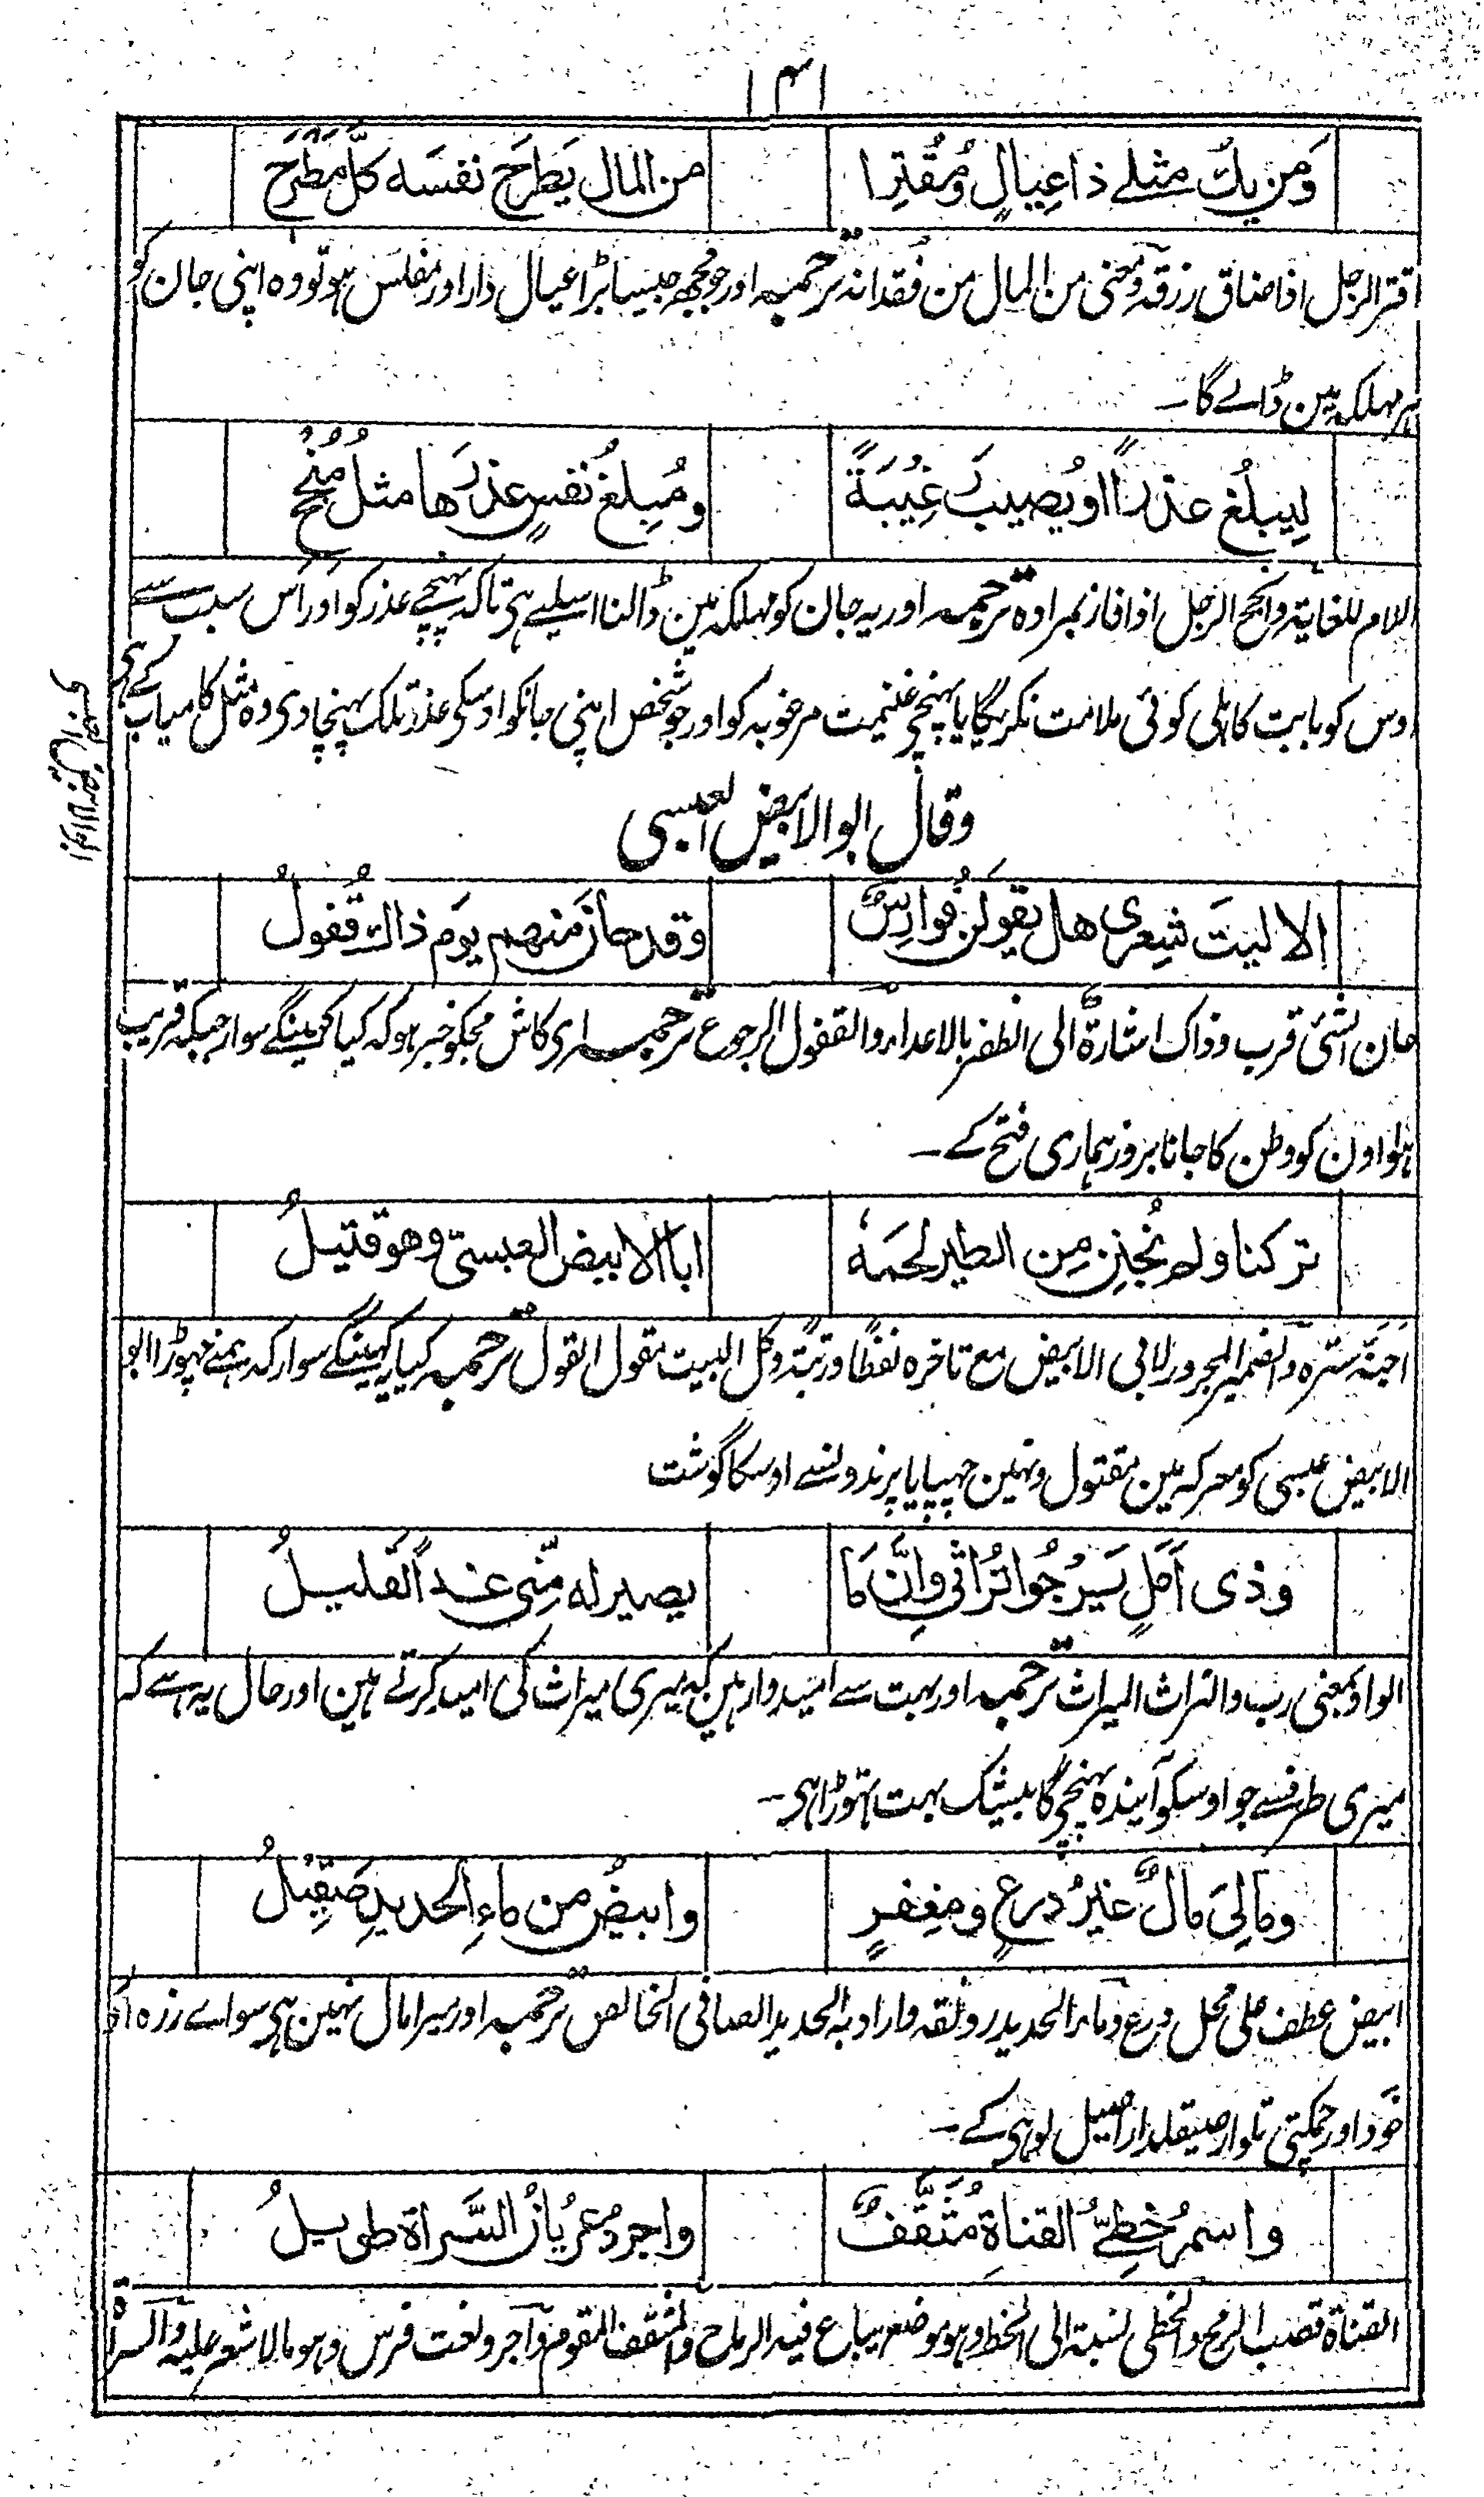 ۱۳۱
وَمَن يكُ مثلے ذا عِيالٍ ومُقْتِرا من المال يَطرَح نفسَه كلَّ مَطْرَح
اقتر الرجل اذا ضاق رزقہ وقنی من المال من فقدانہ ترجمہ اور جو مجھ جیسا بڑا عیال دار اور مفلس ہو تو وہ اپنی جان کو
ہر مہلکہ مین ڈالے گا۔
لِيبلُغ عذرًا او يُصيبَ رَغِيبَةً ومُبلغُ نفسٍ عذرَها مثلُ مُنْجِحِ
اللام للغایۃ وانجح الرجل اذا فاز بمرادہ ترجمہ اور یہ جان کو مہلکہ مین ڈالنا اسلیے ہی تاکہ پہنچے عذر کو اور اس سبب سے
اوس کو بابت کاہلی کوئی ملامت نکریگا یا پہنچی غنیمت مرغوبہ کو اور جو شخص اپنی جانکو اوسکی عذر تلک پہنچا دی وہ مثل کامیاب کے ہی
وقال ابو الابیض العبسی
ابو الابیض العبسی
الا ليتَ شِعرى هل يقولَن فوارِسٌ وقد حازَ منهم يومَ ذاك قُفولُ
حان الشئ قرب وذاک اشارۃ الی الظفر بالاعداء والقفول الرجوع ترجمہ اری کاش مجکو خبر ہو کہ کیا کہینگے سوار جبکہ قریب
ہوا اون کو وطن کا جانا بروز ہماری فتح کے۔
تركنا ولم نُجنِن مِن الطير لحمَهٗ ابا الابيض العبسىّ وهو قتيلُ
اجنّہ سترہ والضمیر المجرور لابی الابیض مع تاخرہ لفظًا ورتبۃ وکل البیت مقول القول ترجمہ کیا یہ کہینگے سوار کہ ہمنے چہوڑا ابو
الابیض عبسی کو معرکہ مین مقتول ونہین چہپایا پرندونسے اوسکا گوشت
وذى اَمَلٍ يَرْجُوا تُراثى وإنّ مَا يصير له مِنّى غدًا لقليلُ
الواو بمعنی رب والتراث المیراث ترجمہ اور بہت سے امیدوار ہین کہ میری میراث کی امید کرتے ہین اور حال یہ ہے کہ
میری طرفسے جو اوسکو آیندہ پہنچی گا بیشک بہت تہوڑا ہی۔
ومَالِىَ مالٌ غيرُ درعٍ ومِغفرٍ وابيضُ من ماءِ الحديدِ صَقِيْلُ
ابیض عطف علی محل درع وماء الحدید رونقہ واراد بہ الحدید الصافی الخالص ترجمہ اور میرا مال نہین ہی سواے زرہ اور
خود اور چمکتی تلوار صیقلدار اصیل لوہی کے۔
واسمرُ خطِّےُّ القناةِ مُثَقَّفٌ واجردُ عُريانُ السَّراة طويلُ
القناۃ قصب الرمح والخطی نسبۃ الی الخط وہو موضع یباع فیہ الرماح والمثقف المقوم وآجرد نعت فرس وہو مالا شعر علیہ والسراۃ